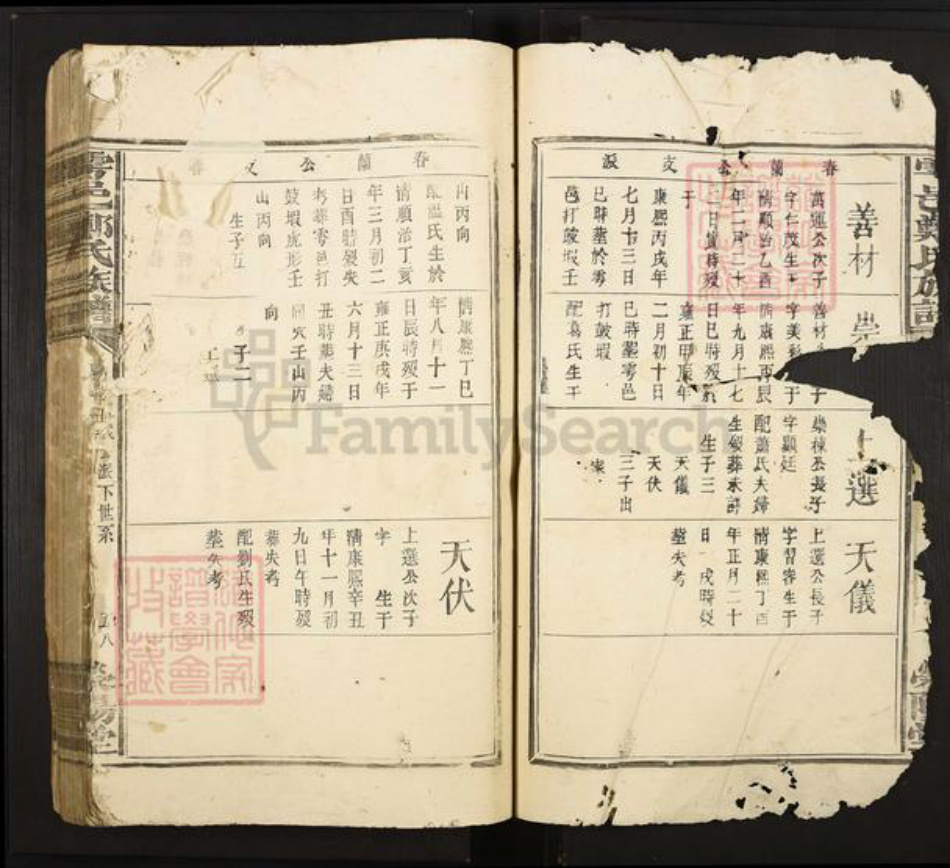 春蘭公支派
善材
萬運公次子
字仁茂生于
清順治乙酉
年二月二十
日寅時歿
于
康熙丙戌年
七月十三日
巳時葬於雩
邑打鼓塅壬
崇
善材公
字美
清康熙丙辰
年九月十七
日巳時歿於
雍正甲寅年
二月初十日
巳時葬雩邑
打鼓塅
配葛氏生于
上選
崇棟公長子
字顯廷
配蕭氏夫婦
生歿葬未詳
生子三
天儀
天伏
三子出
天儀
上選公長子
字習容生于
清康熙丁酉
年正月二十
日戌時歿
葬失考
春蘭公支
山丙向
配
氏生於
清順治丁亥
年三月初二
日酉時歿失
考葬雩邑打
鼓塅虎形壬
山丙向
生子五
清康熙丁巳
年八月十一
日辰時歿于
雍正庚戌年
六月十三日
丑時葬夫婦
同穴壬山丙
向
子二
天伏
上選公次子
字 生于
清康熙辛丑
年十一月初
九日午時歿
葬失考
配劉氏生歿
葬失考
雩邑鄭氏族譜
派下世系
五八
滎陽堂
雩邑鄭氏族譜
FamilySearch